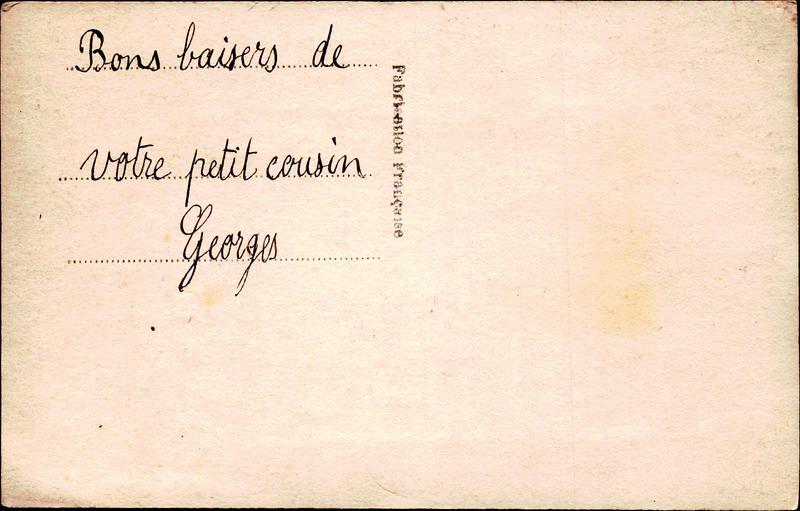 Bons baisers de
votre petit cousin
Georges
Fabrication Française